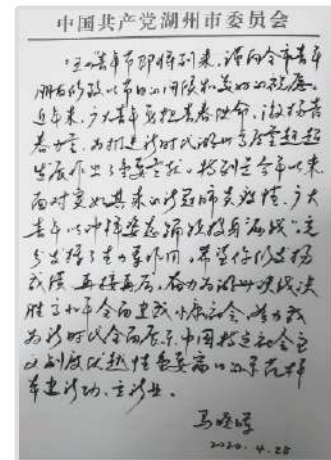 中国共产党湖州市委员会
“五四”青年节即将到来，谨向全市青年
朋友们致以节日的问候和美好的祝愿。
近年来，广大青年勇担青春使命，激扬青
春力量，为推进新时代湖州高质量赶超
发展作出了重要贡献。特别是今年以来
面对突如其来的新冠肺炎疫情，广大
青年以冲锋姿态踊跃投身“两战”，充
分发挥了生力军作用。希望你们发扬
成绩，再接再厉，奋力为湖州决战决
胜高水平全面建成小康社会、努力成
为新时代全面展示中国特色社会主
义制度优越性重要窗口的示范样
本建新功、立新业。
马晓晖
2020.4.28